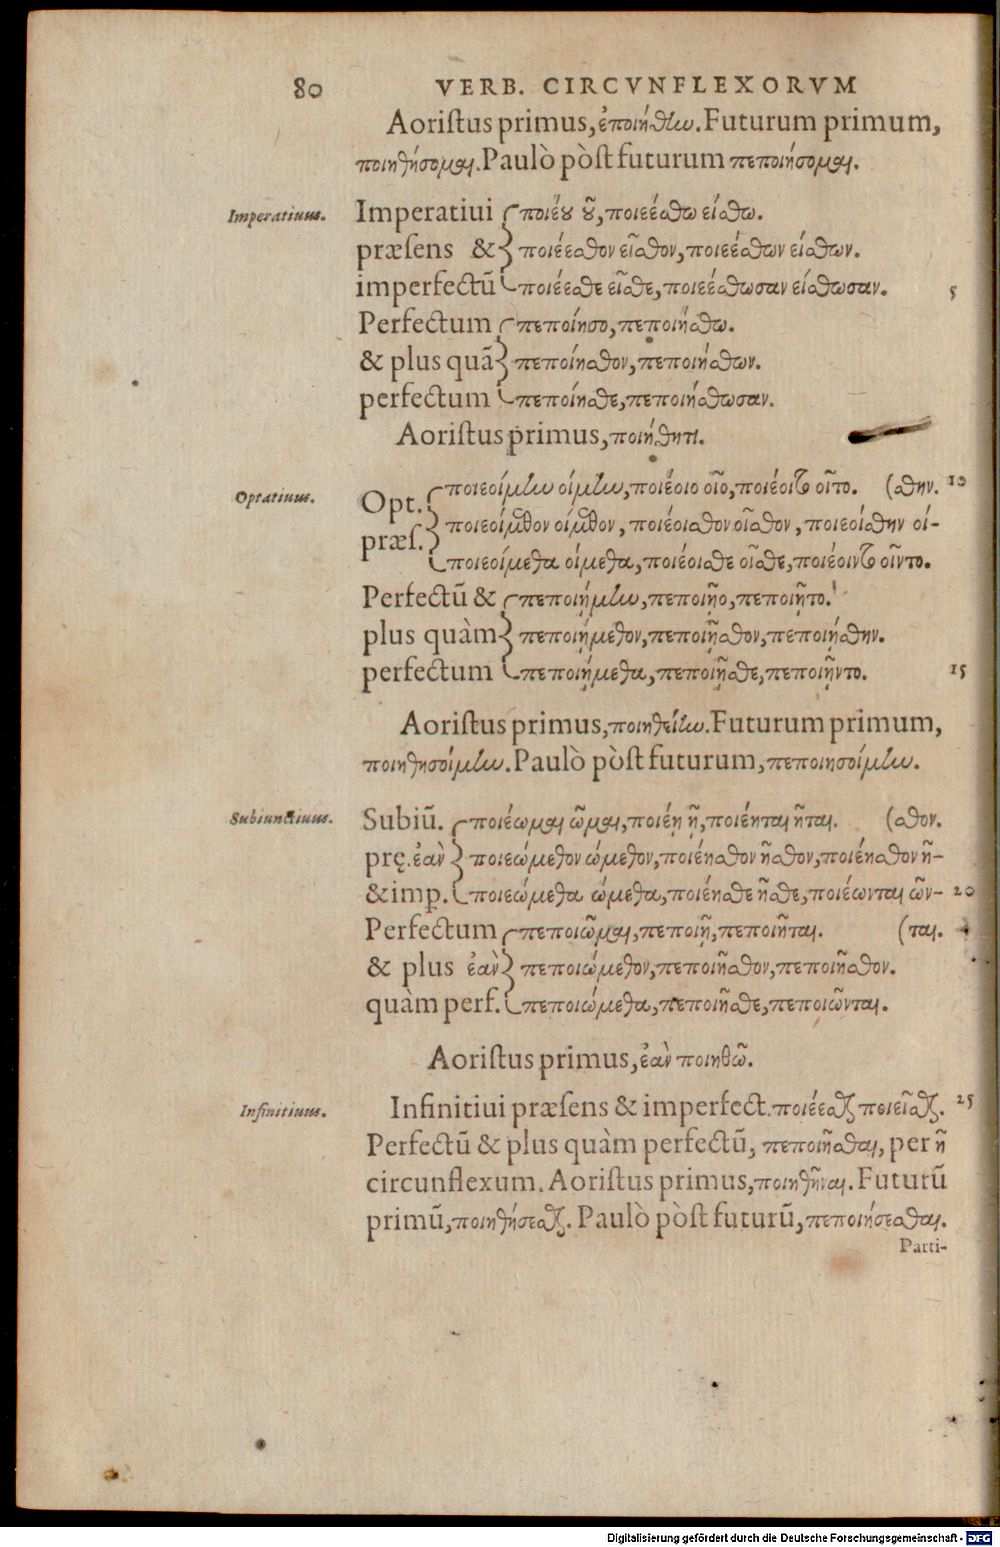 80 VERB. CIRCVNFLEXORVM
Aoristus primus, ἐποιήθην. Futurum primum,
ποιηθήσομαι. Paulò pòst futurum πεποιήσομαι.
Imperatiuus.
Imperatiui ποιέου οῦ, ποιεέσθω είσθω.
præsens & ποιέεσθον εῖσθον, ποιεέσθων είσθων.
imperfectũ ποιέεσθε εῖσθε, ποιεέσθωσαν είσθωσαν. 5
Perfectum πεποίησο, πεποιήσθω.
& plus quã πεποίησθον, πεποιήσθων.
perfectum πεποίησθε, πεποιήσθωσαν.
Aoristus primus, ποιήθητι.
Optatiuus.
Opt. ποιεοίμην οίμην, ποιέοιο οῖο, ποιέοιτο οῖτο. (σθην. 10
ποιεοίμεθον οίμεθον, ποιέοισθον οῖσθον, ποιεοίσθην οί-
præs. ποιεοίμεθα οίμεθα, ποιέοισθε οῖσθε, ποιέοιντο οῖντο.
Perfectũ & πεποιῄμην, πεποιῇο, πεποιῇτο.
plus quàm πεποιῄμεθον, πεποιῇσθον, πεποιῄσθην.
perfectum πεποιῄμεθα, πεποιῇσθε, πεποιῇντο. 15
Aoristus primus, ποιηθείην. Futurum primum,
ποιηθησοίμην. Paulò pòst futurum, πεποιησοίμην.
Subiunctiuus.
Subiũ. ποιέωμαι ῶμαι, ποιέῃ ῇ, ποιέηται ῆται. (σθον.
prę. ἐὰν ποιεώμεθον ώμεθον, ποιέησθον ῆσθον, ποιέησθον ῆ-
& imp. ποιεώμεθα ώμεθα, ποιέησθε ῆσθε, ποιέωνται ῶν- 20
Perfectum πεποιῶμαι, πεποιῇ, πεποιῆται. (ται.
& plus ἐὰν πεποιώμεθον, πεποιῆσθον, πεποιῆσθον.
quàm perf. πεποιώμεθα, πεποιῆσθε, πεποιῶνται.
Aoristus primus, ἐὰν ποιηθῶ.
Infinitiuus.
Infinitiui præsens & imperfect. ποιέεσθαι ποιεῖσθαι. 25
Perfectũ & plus quàm perfectũ, πεποιῆσθαι, per ῆ
circunflexum. Aoristus primus, ποιηθῆναι. Futurũ
primũ, ποιηθήσεσθαι. Paulò pòst futurũ, πεποιήσεσθαι.
Parti-
Digitalisierung gefördert durch die Deutsche Forschungsgemeinschaft - DFG